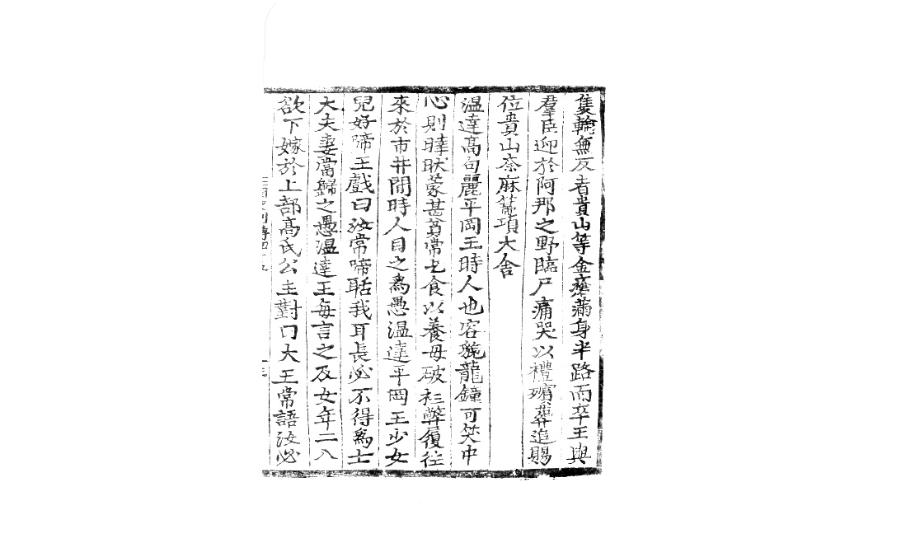 隻輪無反者貴山等金瘡滿身半路而卒王與
羣臣迎於阿那之野臨尸痛哭以禮殯葬追賜
位貴山奈麻箒項大舍
溫達高句麗平岡王時人也容貌龍鐘可笑中
心則然家甚貧常乞食以養母破衫弊履往
來於市井間時人目之爲愚溫達平岡王少女
兒好啼王戲曰汝常啼聒我耳長必不得爲士
大夫妻當歸之愚溫達王每言之及女年二八
欲下嫁於上部高氏公主對曰大王常語汝必